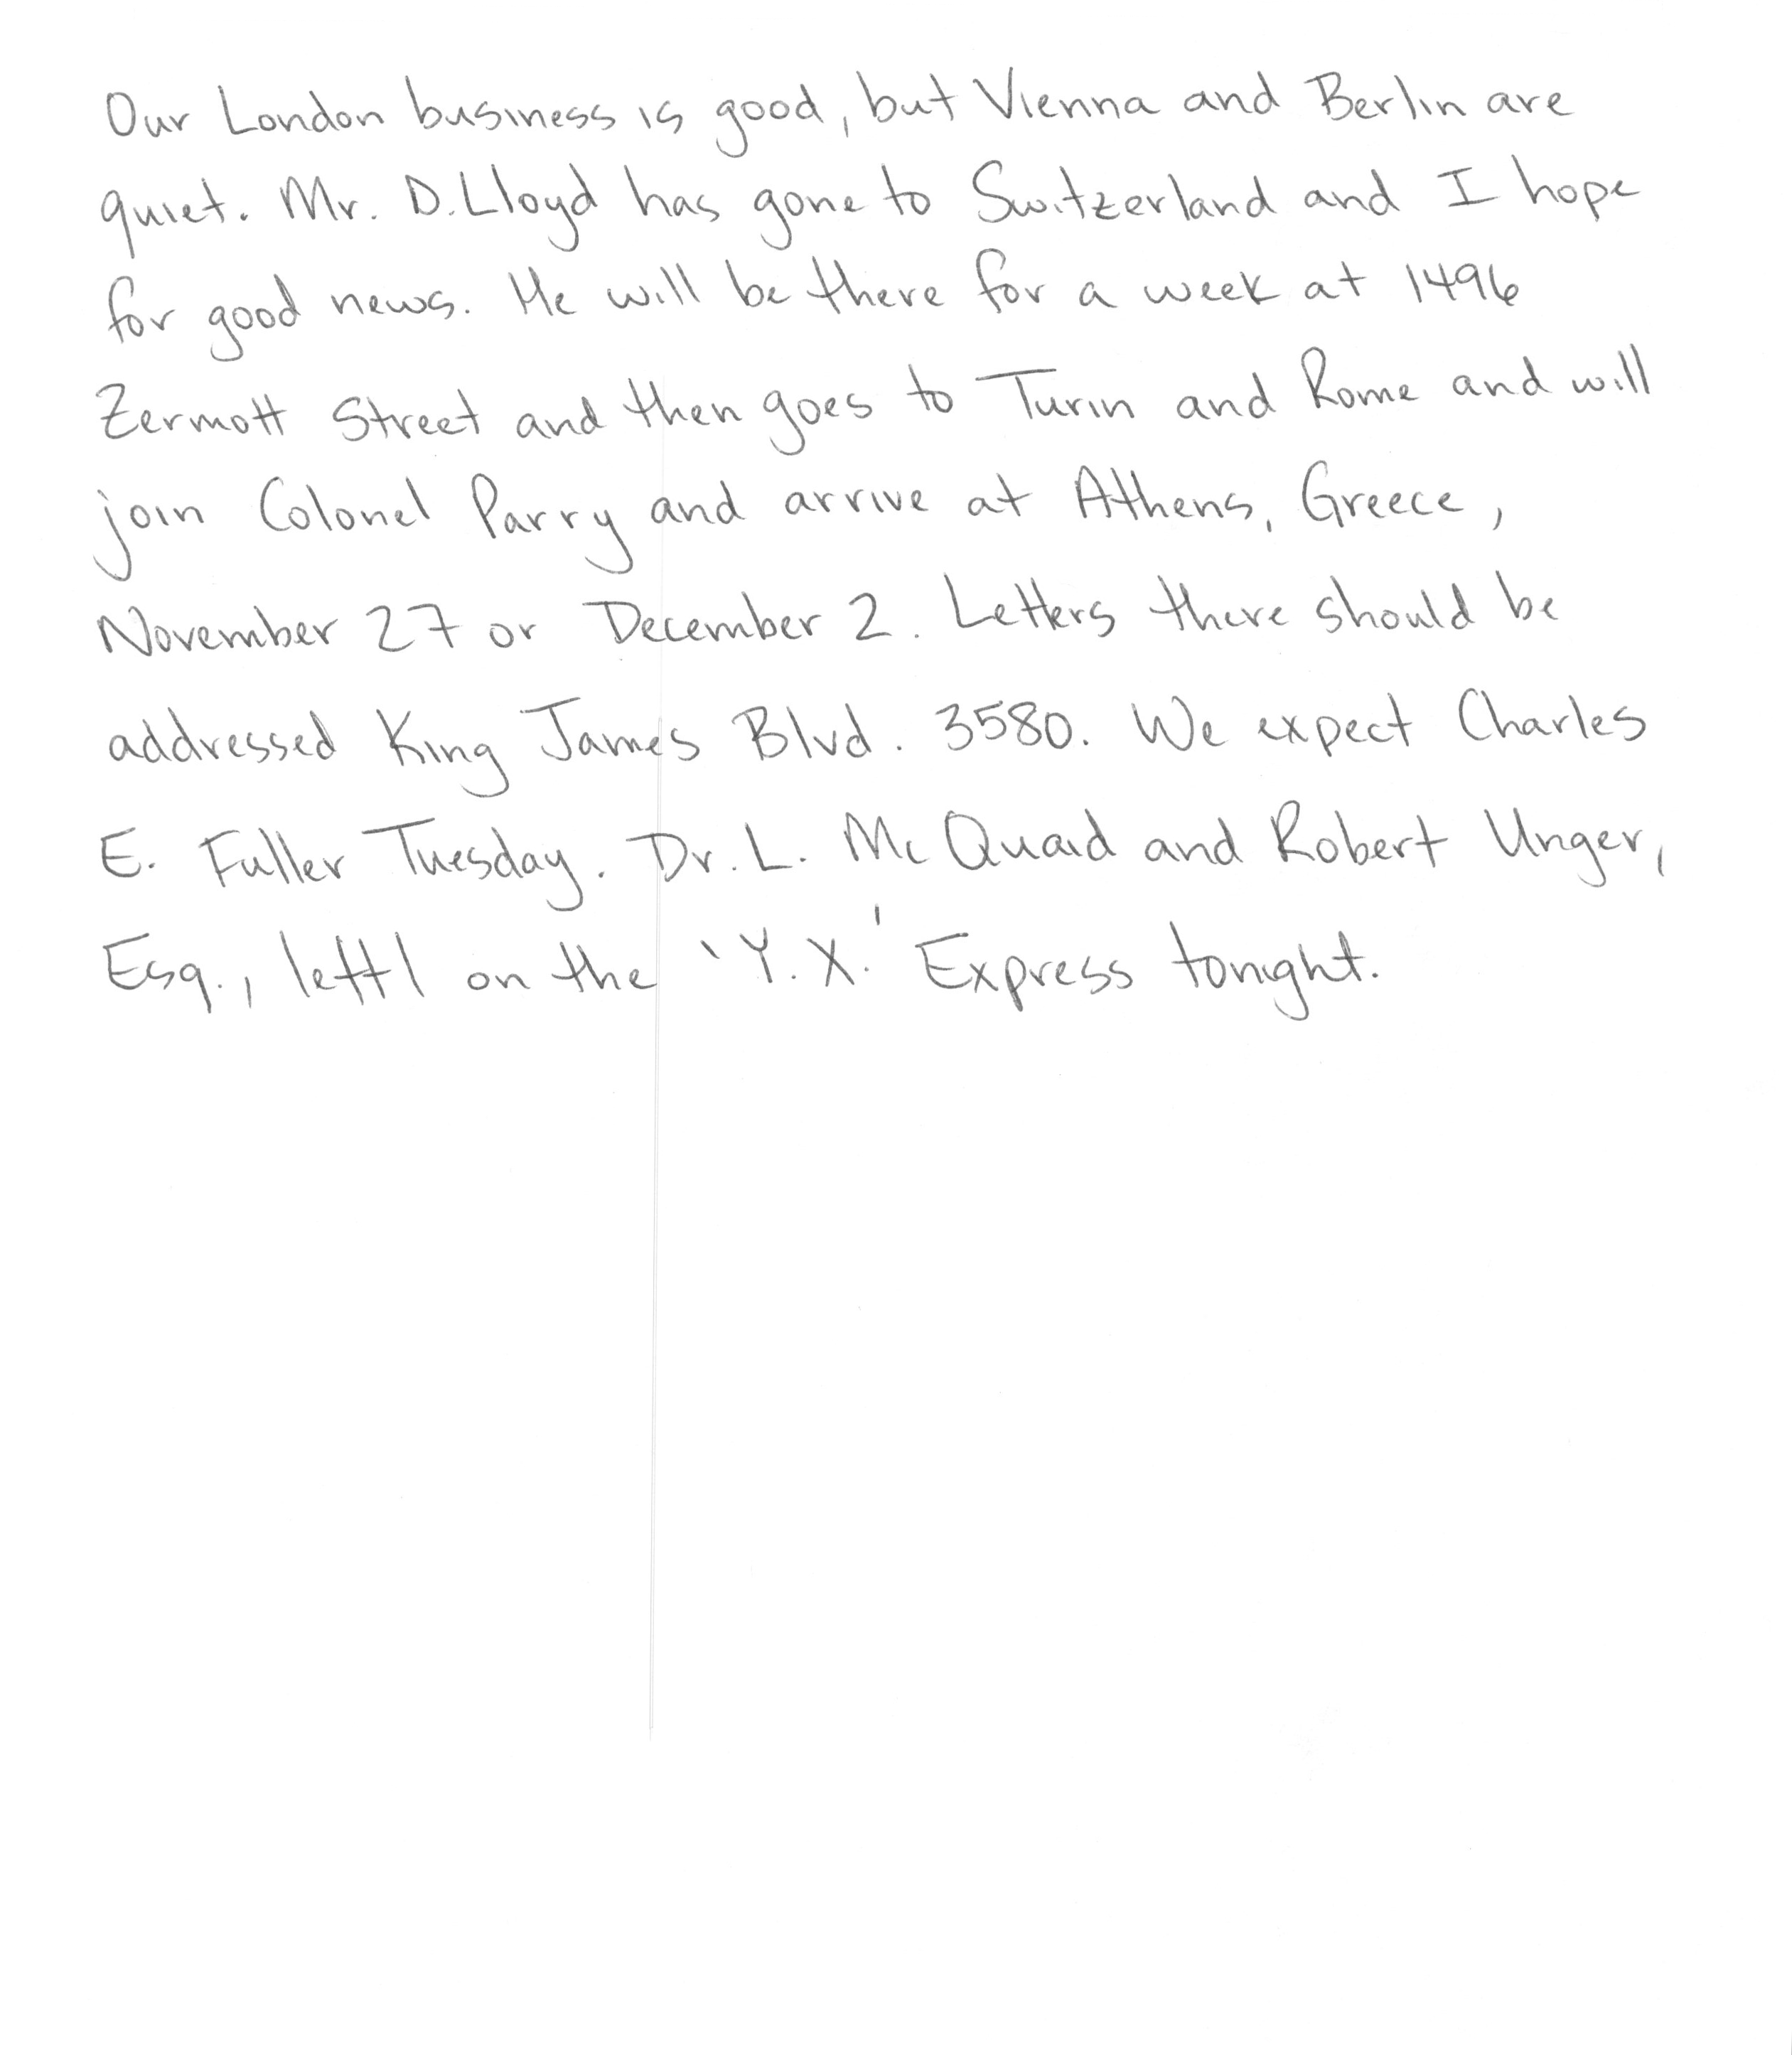 Our London business is good, but Vienna and Berlin are
quiet. Mr. D. Lloyd has gone to Switzerland and I hope
for good news. He will be there for a week at 1496
Zermott Street and then goes to Turin and Rome and will
join Colonel Parry and arrive at Athens, Greece,
November 27 or December 2. Letters there should be
addressed King James Blvd. 3580. We expect Charles
E. Fuller Tuesday. Dr. L. McQuaid and Robert Unger,
Esq., lettl on the 'Y.X.' Express tonight.